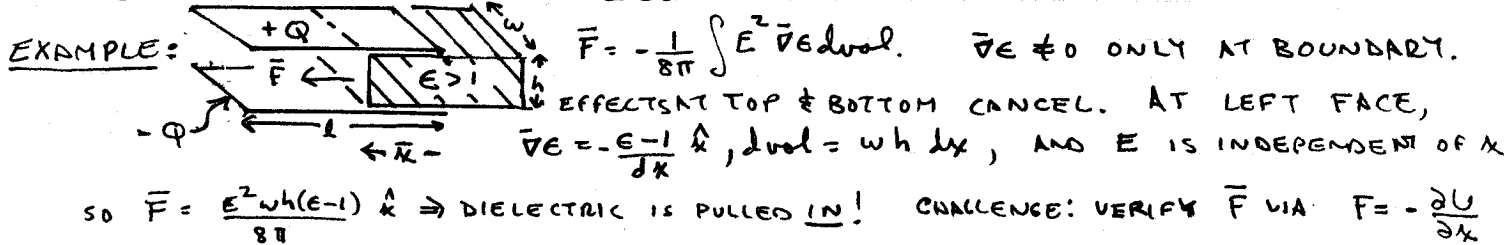 EXAMPLE: +Q w F̄ = -1/8π ∫ E² ∇̄ϵ dvol. ∇̄ϵ ≠ 0 ONLY AT BOUNDARY.
F̄ ← ϵ>1 h EFFECTS AT TOP & BOTTOM CANCEL. AT LEFT FACE,
-Q l ← x̄ - ∇̄ϵ = - (ϵ-1)/dx x̂, dvol = wh dx, AND E IS INDEPENDENT OF x
SO F̄ = E²wh(ϵ-1)/8π x̂ ⇒ DIELECTRIC IS PULLED IN! CHALLENGE: VERIFY F̄ VIA F = - ∂U/∂x